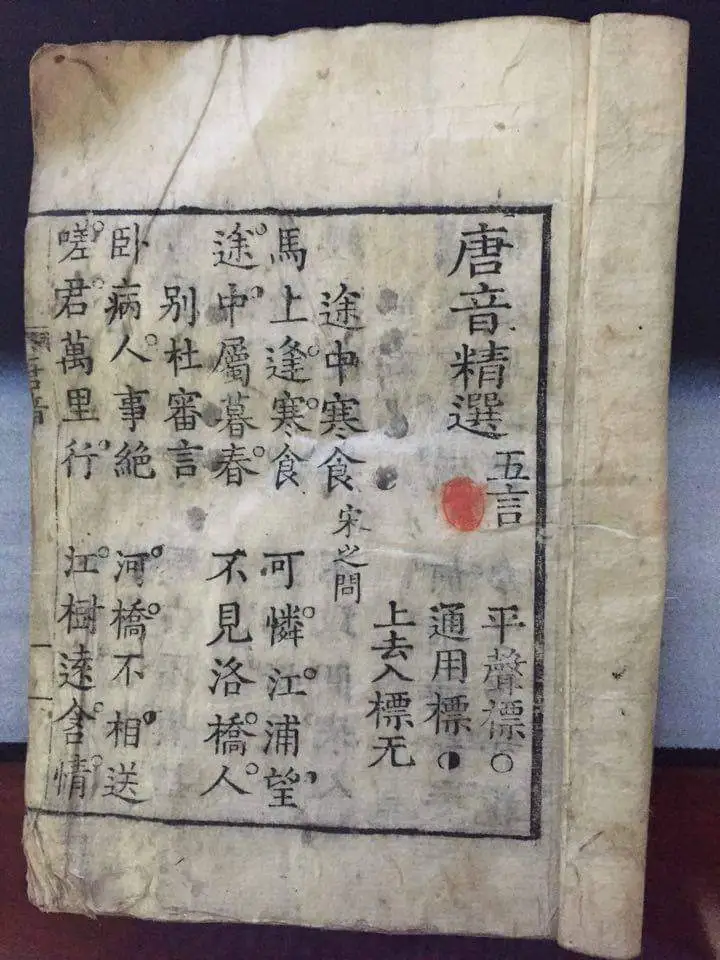 唐音精選 五言
平聲標○
通用標◐
上去入標无
途中寒食 宋之問
馬上逢寒食 可憐江浦望
途中屬暮春 不見洛橋人
别杜審言
卧病人事絶 河橋不相送
嗟君萬里行 江樹逺含情
唐音